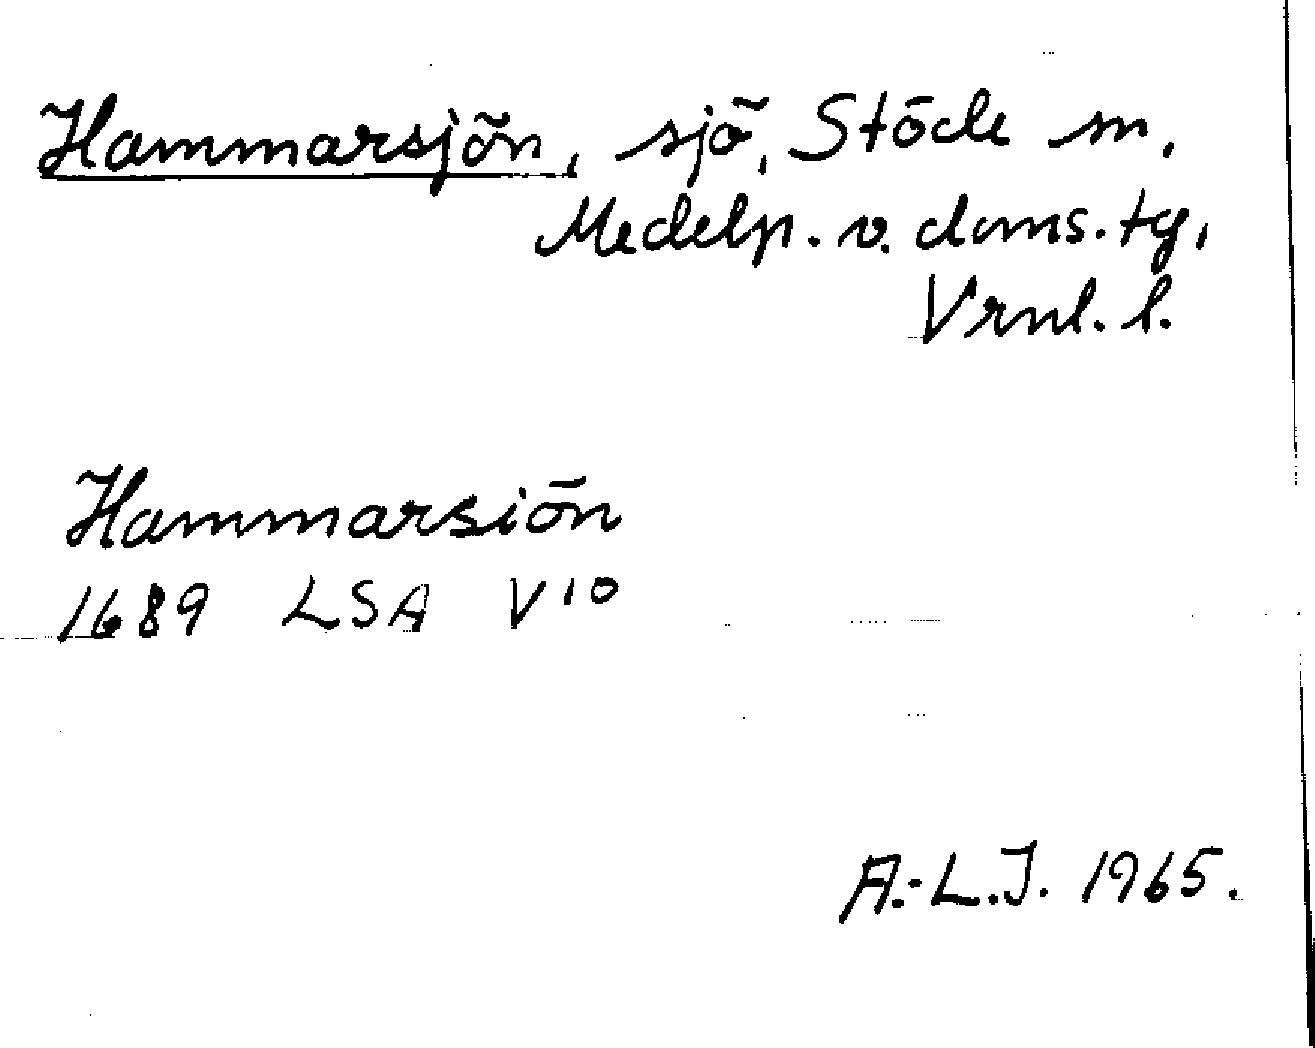 Hammarsjön, sjö, Stöde sn,
Medelp. v. doms. tg,
Vrnl. l.
Hammarsiön
1689 LSA V 10
A.-L.J. 1965.